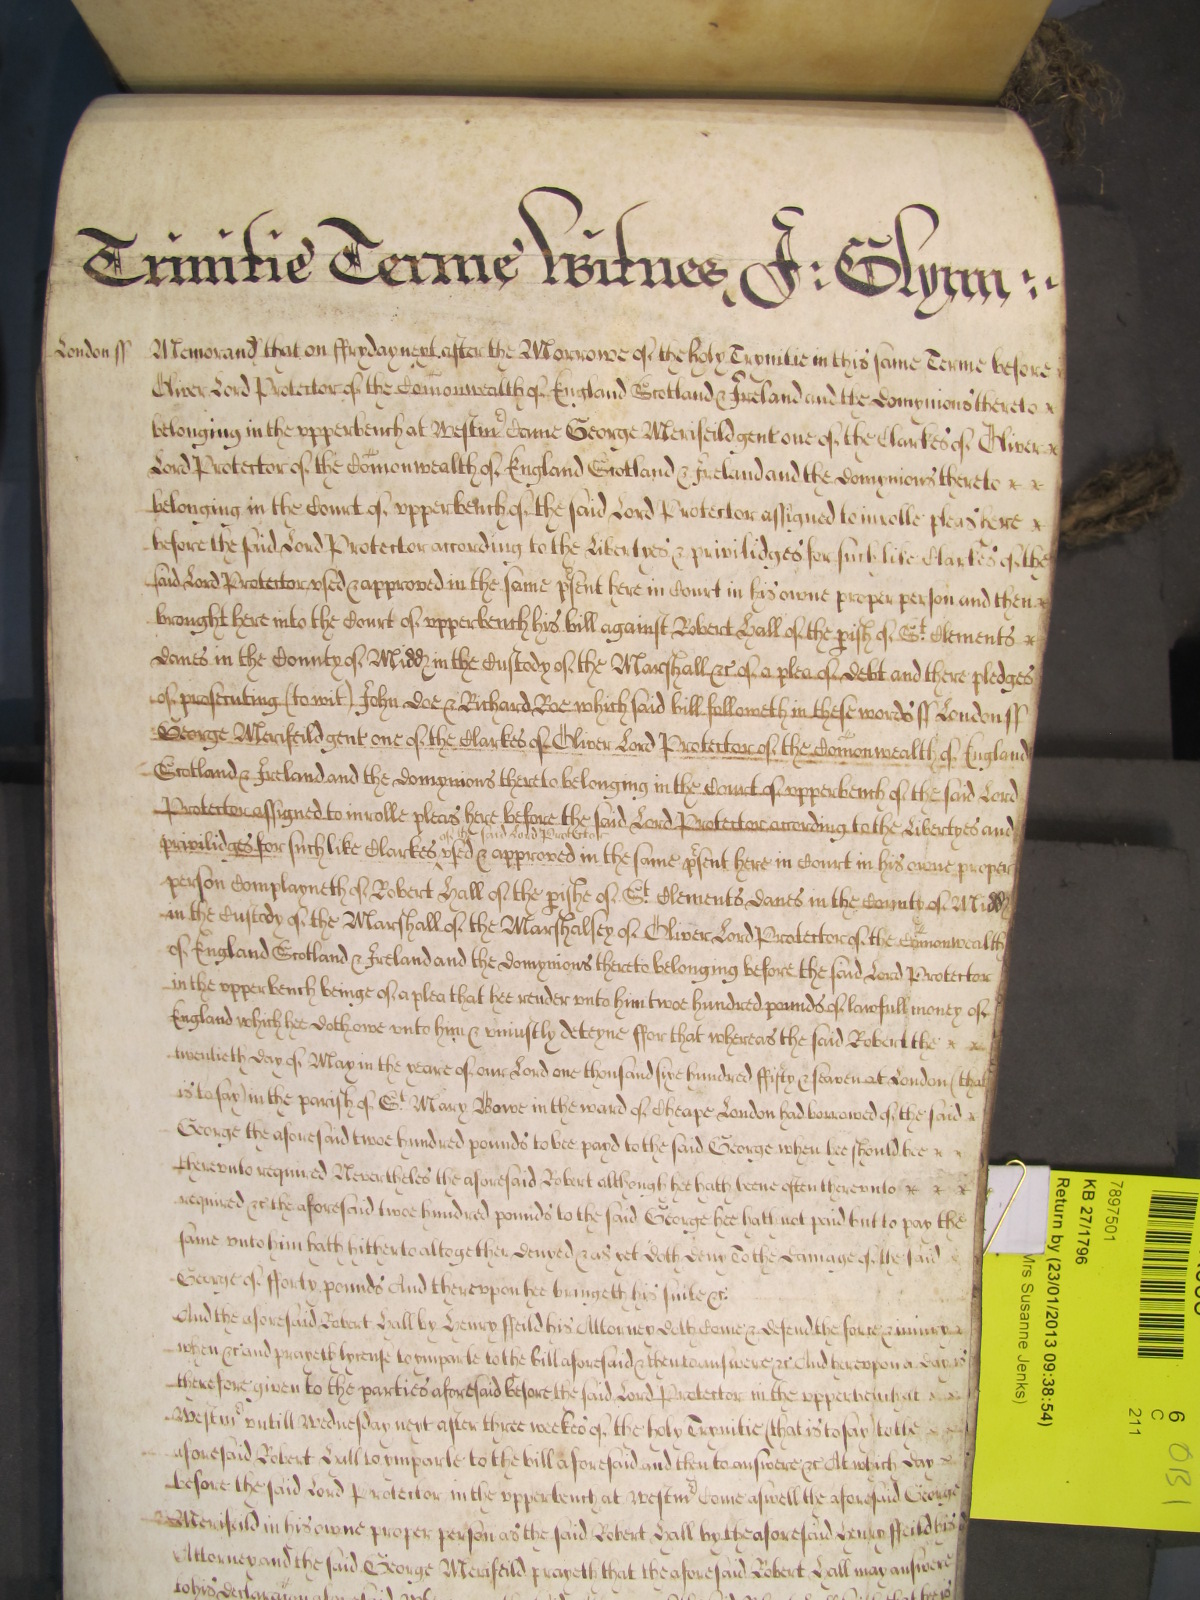 Trinitie Terme Witnes J: Glynn
London ss Memorand that on ffryday next after the Morrowe of the holy Trynitie in this same Terme before
Oliver Lord Protector of the Comonwealth of England Scotland & Ireland and the domynions thereto
belonging in the vpperbench at Westmr Came George Merifeild gent one of the Clarkes of Oliver
Lord Protector of the Comonwealth of England Scotland & Ireland and the domynions thereto
belonging in the Court of vpperbench of the said Lord Protector assigned to inrolle pleas here
before the said Lord Protector according to the Libertyes & privilidges for such like Clarkes of the
said Lord Protector vsed & approved in the same psent here in Court in his owne proper person and then
brought here into the Court of vpperbench his bill against Robert Hall of the pish of St Clements
Danes in the County of Midd in the Custody of the Marshall &c of a plea of debt and there pledges
of prosecuting (to wit) John Doe & Richard Roe which said bill followeth in these words ss London ss
George Merifeild gent one of the Clarkes of Oliver Lord Protector of the Comonwealth of England
Scotland & Ireland and the domynions thereto belonging in the Court of vpperbench of the said Lord
Protector assigned to inrolle pleas here before the said Lord Protector according to the Libertyes and
of the said Lord Protector
priviledges for such like Clarkes vsed & approved in the same psent here in Court in his owne proper
person Complayneth of Robert Hall of the pishe of St Clements Danes in the County of Midd
in the Custody of the Marshall of the Marshalsey of Oliver Lord Protector of the Comonwealth
of England Scotland & Ireland and the domynions thereto belonging before the said Lord Protector
in the vpperbench beinge of a plea that hee render vnto him twoe hundred pounds of lawfull money of
England which hee doth owe vnto him & vniustly deteyne ffor that whereas the said Robert the
twentieth day of May in the yeare of our Lord one thousand sixe hundred ffifty & seaven at London (that
is to say) in the parish of St Mary Bowe in the ward of Cheape London had borrowed of the said
George the aforesaid twoe hundred pounds to bee payd to the said George when hee should bee
therevnto required Nevertheles the aforesaid Robert although hee hath beene often therevnto
required &c the aforesaid twoe hundred pounds to the said George hee hath not paid but to pay the
same vnto him hath hitherto altogether denyed & as yet doth deny To the damage of the said
George of fforty pounds And therevpon hee bringeth his suite &c
And the aforesaid Robert Hall by Henry ffeild his Attorney doth Come & defend the force & iniury
when &c and prayeth lycense to imparle to the bill aforesaid & then to answere &c And herevpon a day is
therefore given to the parties aforesaid before the said Lord Protector in the vpperbench at
Westmr vntill Wednesday next after three weekes of the holy Trynitie (that is to say) to the
aforesaid Robert Hall to imparle to the bill aforesaid and then to answere &c At which day
before the said Lord Protector in the vpperbench at Westmr Come aswell the aforesaid George
Merifeild in his owne proper person as the said Robert Hall by the aforesaid Henry ffeild his
Attorney and the said George Merifeild prayeth that the aforesaid Robert Hall may answere
to his declaracion aforesaid
7897501
KB 27/1796
Return by (23/01/2013 09:38:54)
Mrs Susanne Jenks)
6
C
211